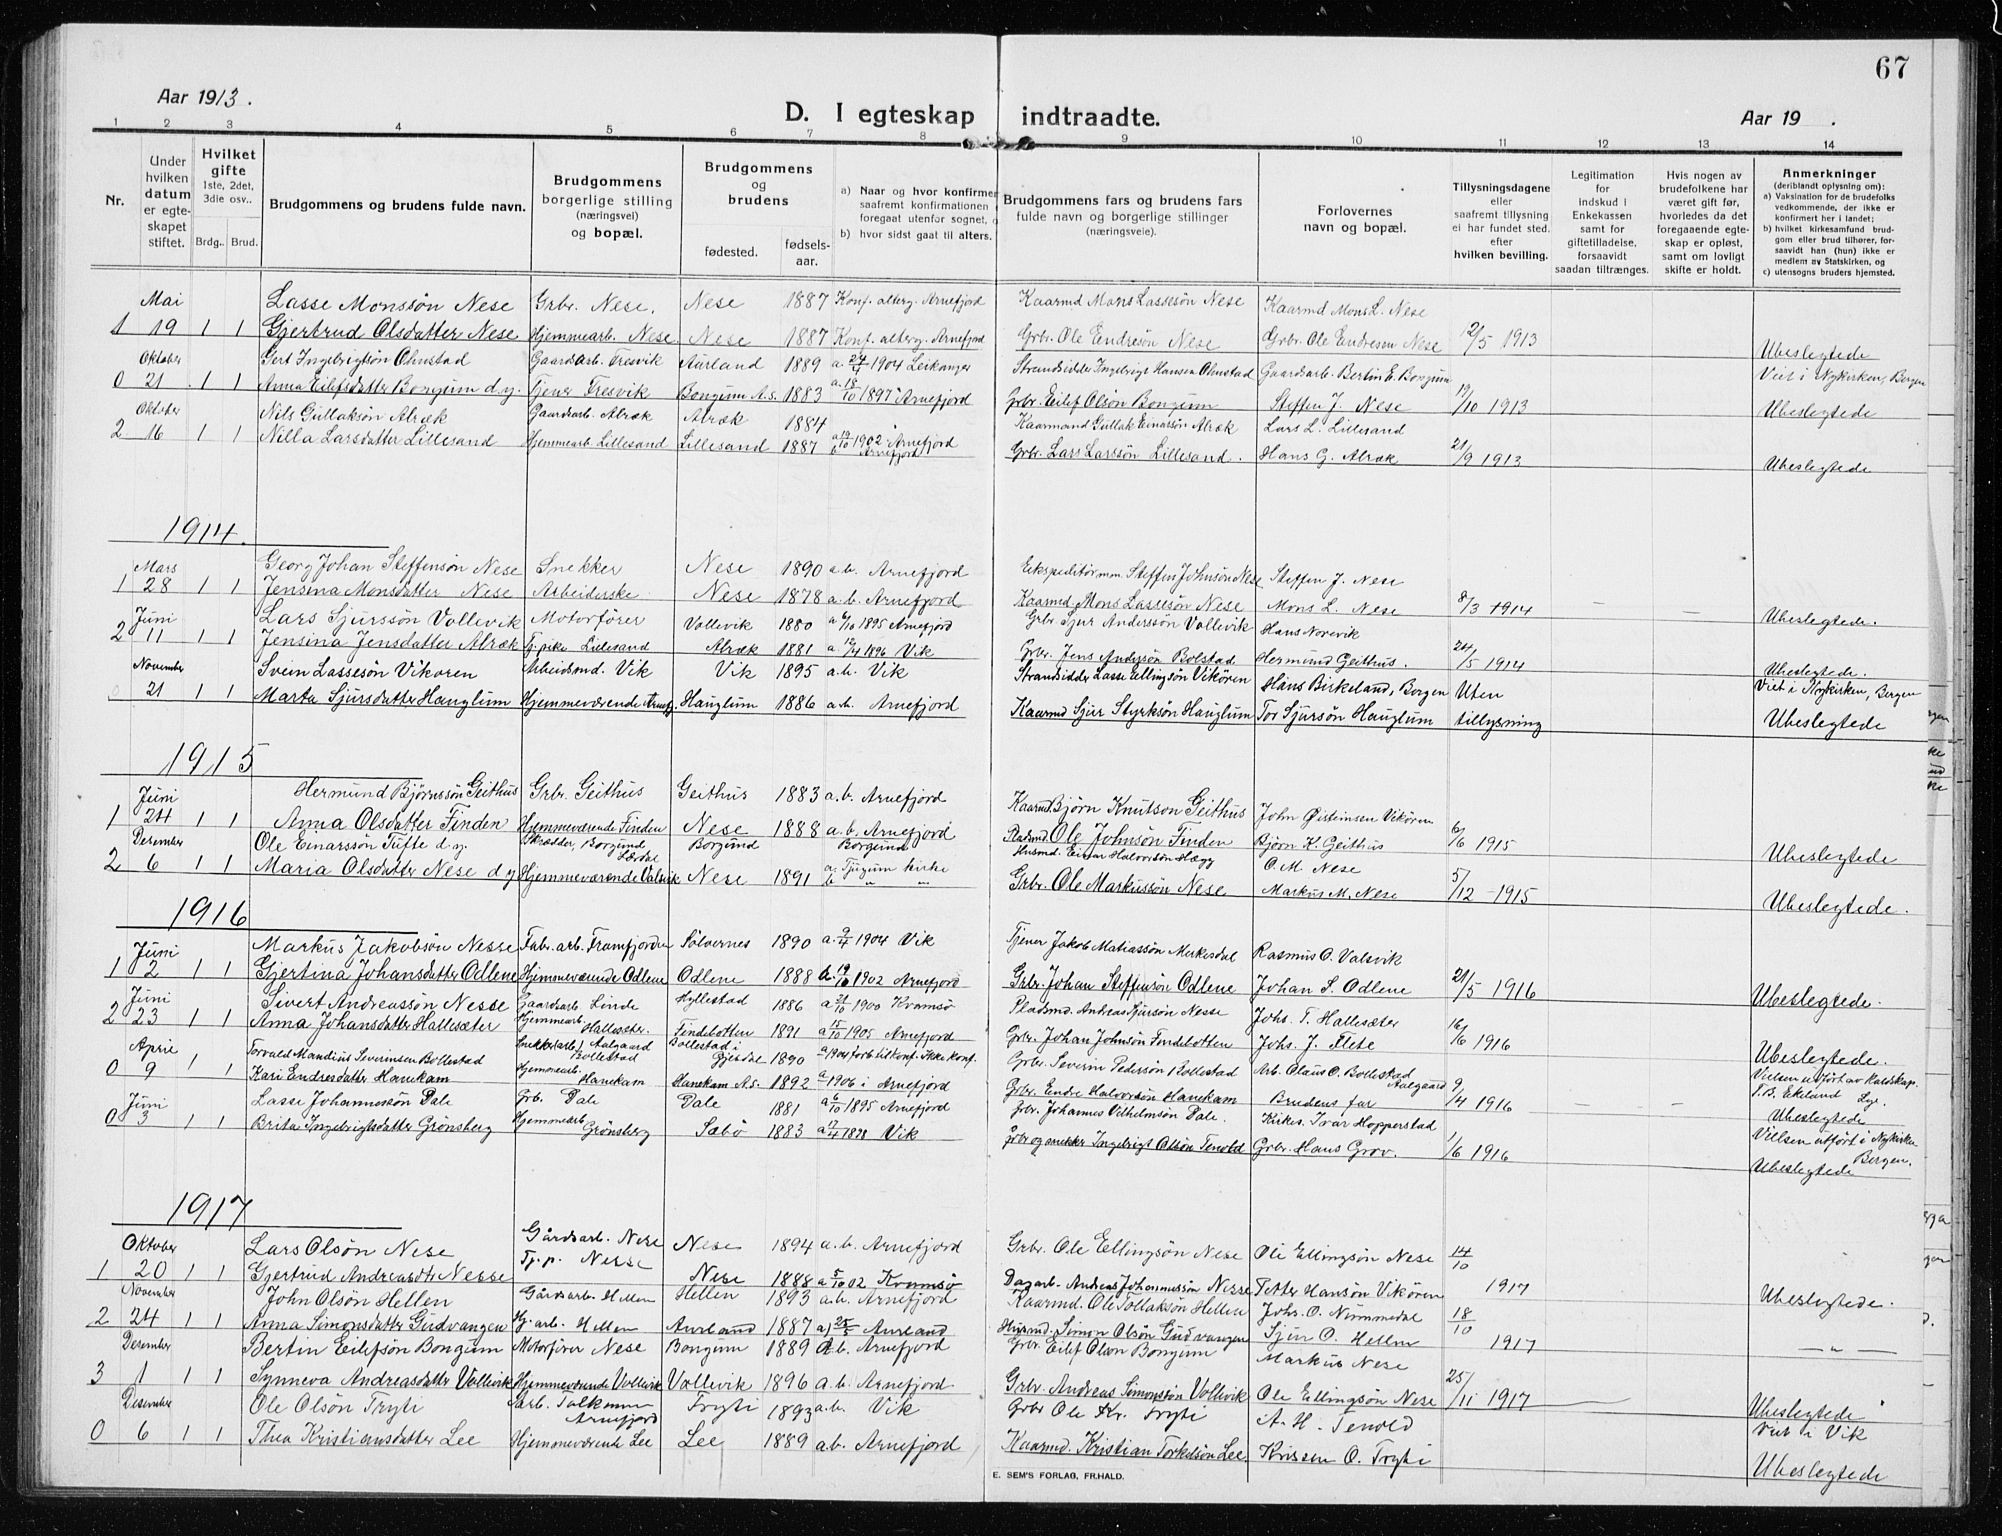 67
Aar 1913.
D. I egteskap indtraadte.
Aar 19 .
1 2 3 4 5 6 7 8 9 10 11 12 13 14
Nr.
Under hvilken datum er egteskapet stiftet.
Hvilket gifte 1ste, 2det, 3die osv..
Brdg.. Brud.
Brudgommens og brudens fulde navn.
Brudgommens borgerlige stilling (næringsvei) og bopæl.
Brudgommens og brudens
fødested. fødsels-aar.
a) Naar og hvor konfirmer saafremt konfirmationen foregaat utenfor sognet,
b) hvor sidst gaat til alters.
Brudgommens fars og brudens fars fulde navn og borgerlige stillinger (næringsveie).
Forlovernes navn og bopæl.
Tillysningsdagene eller saafremt tillysning ei har fundet sted. efter hvilken bevilling.
Legitimation for indskud i Enkekassen samt for giftetilladelse, forsaavidt saadan tiltrænges.
Hvis nogen av brudefolkene har været gift før, hvorledes da det foregaaende egteskap er opløst, samt om lovligt skifte er holdt.
Anmerkninger (deriblandt oplysning om):
a) Vaksination for de brudefolks vedkommende, der ikke er konfirmert her i landet;
b) hvilket kirkesamfund brudgom eller brud tilhører, forsaavidt han (hun) ikke er medlem av Statskirken, og
c) utensogns bruders hjemsted.
Mai Lasse Monssön Nese Grbr. Nese. Nese 1887 Konf. alterg. Arnefjord Kaarmd Mons Lassesön Nese Kaarmd Mons L. Nese
1 19 1 1 Gjertrud Olsdatter Nese Hjemmearb. Nese Nese 1887 Konf. alterg. Arnefjord Grbr. Ole Endresön Nese Grbr. Ole Endresen Nese 12/5 1913 Ubeslegtede
Oktober Gert Ingebrigtsön Ohnstad Gaardsarb. Fresvik Aurland 1889 a. 24/4 1904 Leikanger Strandsidder Ingebrigt Hansen Ohnstad Gaardsarb. Bertin E. Bongum Viet i Nykirken, Bergen
0 21 1 1 Anna Eilefsdatter Bongum d.y. Tjener Fresvik Bongum A.s. 1883 a. 18/10 1897 Arnefjord Grbr. Eilef Olsön Bongum Steffen J. Nese 19/10 1913 Ubeslegtede
Oktober Nils Gullaksön Alræk Gaardsarb. Alræk Alræk 1884 Kaarmand Gullak Einarsön Alræk Lars L. Lillesand
2 16 1 1 Nilla Larsdatter Lillesand Hjemmearb. Lillesand Lillesand 1887 a 19/10 1902 Arnefjord b Arnefjord Grbr. Lars Larssön Lillesand. Hans G. Alræk 21/9 1913 Ubeslegtede
1914.
Mars Georg Johan Steffensön Nese Snekker Nese 1890 a.b. Arnefjord Ekspeditör mm Steffen Johnsön Nese Steffen J. Nese
1 28 1 1 Jensina Monsdatter Nese Arbeiderske Nese 1878 a.b. Arnefjord Kaarmd Mons Lassesön Nese Mons L. Nese 8/3 1914 – – Ubeslegtede.
Juni Lars Sjurssön Vollevik Motorförer Vollevik 1880 a 6/10 1895 Arnefjord Grbr Sjur Anderssön Vollevik Hans Norevik
2 11 1 1 Jensina Jensdatter Alræk Tj. pike Lillesand Alræk 1881 a 12/4 1896 Vik Grbr. Jens Andersön Bolstad Hermund Geithus. 24/5 1914 Ubeslegtede.
November Svein Lassesön Vikören Arbeidsmd. Vik Vik 1895 a.b. Vik Strandsidder Lasse Ellingsön Vikören Hans Birkeland, Bergen Uten Viet i Nykirken, Bergen
0 21 1 1 Marta Sjursdatter Hauglum Hjemmeværende Arnefj. Hauglum 1886 a.b. Arnefjord Kaarmd Sjur Styrksön Hauglum Tor Sjursön Hauglum tillysning Ubeslegtede
1915
Juni Hermund Björnssön Geithus Grbr. Geithus Geithus 1883 a.b. Arnefjord Kaarmd. Björn Knutson Geithus John Öisteinsen Vikören
1 24 1 1 Anna Olsdatter Finden Hjemmeværende Finden Nese 1888 a.b. Arnefjord Pladsmd. Ole Johnsön Finden Björn K. Geithus 6/6 1915 Ubeslegtede
Desember Ole Einarssön Tufte d.y. Skrædder Borgund Lærdal Borgund Borgund Husmd. Einar Halvorsön Hægg O. M. Nese
2 6 1 1 Maria Olsdatter Nese d.y Hjemmeværende Valsvik Nese 1891 a. Tjugum kirke b „ „ Grbr. Ole Markussön Nese Markus M. Nese 5/12 – 1915 Ubeslegtede.
1916
Juni Markus Jakobsön Nesse Fabr. arb. Framfjorden Sölvernes 1890 a. 9/4 1904 Vik Tjener Jakob Matiassön Merkesdal Rasmus O. Valsvik
1 2 1 1 Gjertina Johansdatter Odlene Hjemmeværende Odlene Odlene 1888 b. 19/10 1902 Arnefjord Grbr. Johan Steffensön Odlene Johan S. Odlene 21/5 1916 Ubeslegtede.
Juni Sivert Andreassön Nesse Gaardsarb. Linde Hyllestad 1886 a 21/10 1900 Kvamsö Pladsmd. Andreas Sjursön Nesse Johs. T. Hallesæter
2 23 1 1 Anna Johansdatter Hallesæter Hjemmearb. Hallesæter. Findebotten 1891 a 15/10 1905 Arnefjord Grbr. Johan Johnsön Findebotten Johs. J. Flete 16/6 1916 Ubeslegtede.
April Torvald Mandius Severinsen Bollestad Snekkerarb. Aalgaard Bollestad Bollestad i Gjesdal 1890 a 1904 forb. til konf. Ikke konf. Grbr. Severin Pedersön Bollestad Arb. Olaus O. Bollestad Aalgaard Vielsen utfört av Kaldskap.
0 9 1 1 Kari Endresdatter Hanekam Hjemmearb. Hanekam Hanekam A.s. 1892 a 1906 i Arnefjord Grbr. Endre Halvorsön Hanekam Brudens far 9/4 1916 – – T.B. Ekeland Lye. Ubeslegtede
Juni Lasse Johannessön Dale Grb. Dale Dale 1881 a 6/10 1895 Arnefjord Grbr. Johannes Vilhelmsön Dale. Kirkes. Ivar Hopperstad Vielsen utfört i Nykirken Bergen.
0 3 1 1 Brita Ingebrigtsdatter Grönsberg Hjemmearb. Grönsberg Sæbö 1883 a 17/4 1898 Vik Grbr og snekker Ingebrigt Olsön Tenold Grbr. Hans Grov. 1/6 1916 Ubeslegtede
1917
Oktober Lars Olsön Nese Gårdsarb. Nese Nese 1894 a.b. Arnefjord Grbr. Ole Ellingsön Nese Ole Ellingsön Nese 14/10
1 20 1 1 Gjertrud Andreasdtr Nesse Tj. p. Nesse Nese 1888 a 5/10 02 Kvamsö Dagarb. Andreas Johannessön Nesse Petter Hansön Vikören 1917 Ubeslegtede.
November John Olsön Hellen Gårdsarb. Hellen Hellen 1893 a.b. Arnefjord Kaarmd. Ole Tollaksön Hellen Johs. O. Nummedal 18/10
2 24 1 1 Anna Simonsdatter Gudvangen Hj. arb. Hellen Aurland 1887 a) 25/5 Aurland Husmd. Simon Olsön Gudvangen Sjur O. Hellen 1917 — „ —
Desember Bertin Eilefsön Bongum Motorförer Nese Bongum 1889 a.b. Arnefjord Grbr. Eilef Olsen Bongum Markus Nese
3 1 1 1 Synneva Andreasdatter Vollevik Hjemmeværende Vollevik Vollevik 1896 a.b. Arnefjord Grbr. Andreas Simonssön Vollevik Ole Ellingsön Nese 25/11 1917 Ubeslegtede
Desember Ole Olsön Tryti Arb. Arnefjord Tryti 1893 a.b. Vik Grbr Ole Kr. Tryti A. H. Tenold Viet i Vik
0 6 1 1 Thea Kristiansdatter Lee Hjemmeværende Lee Lee 1889 a.b. Arnefjord Kaarmd. Kristian Torkelsön Lee Krissen O. Tryti Ubeslegtede
E. SEM'S FORLAG, FR.HALD.